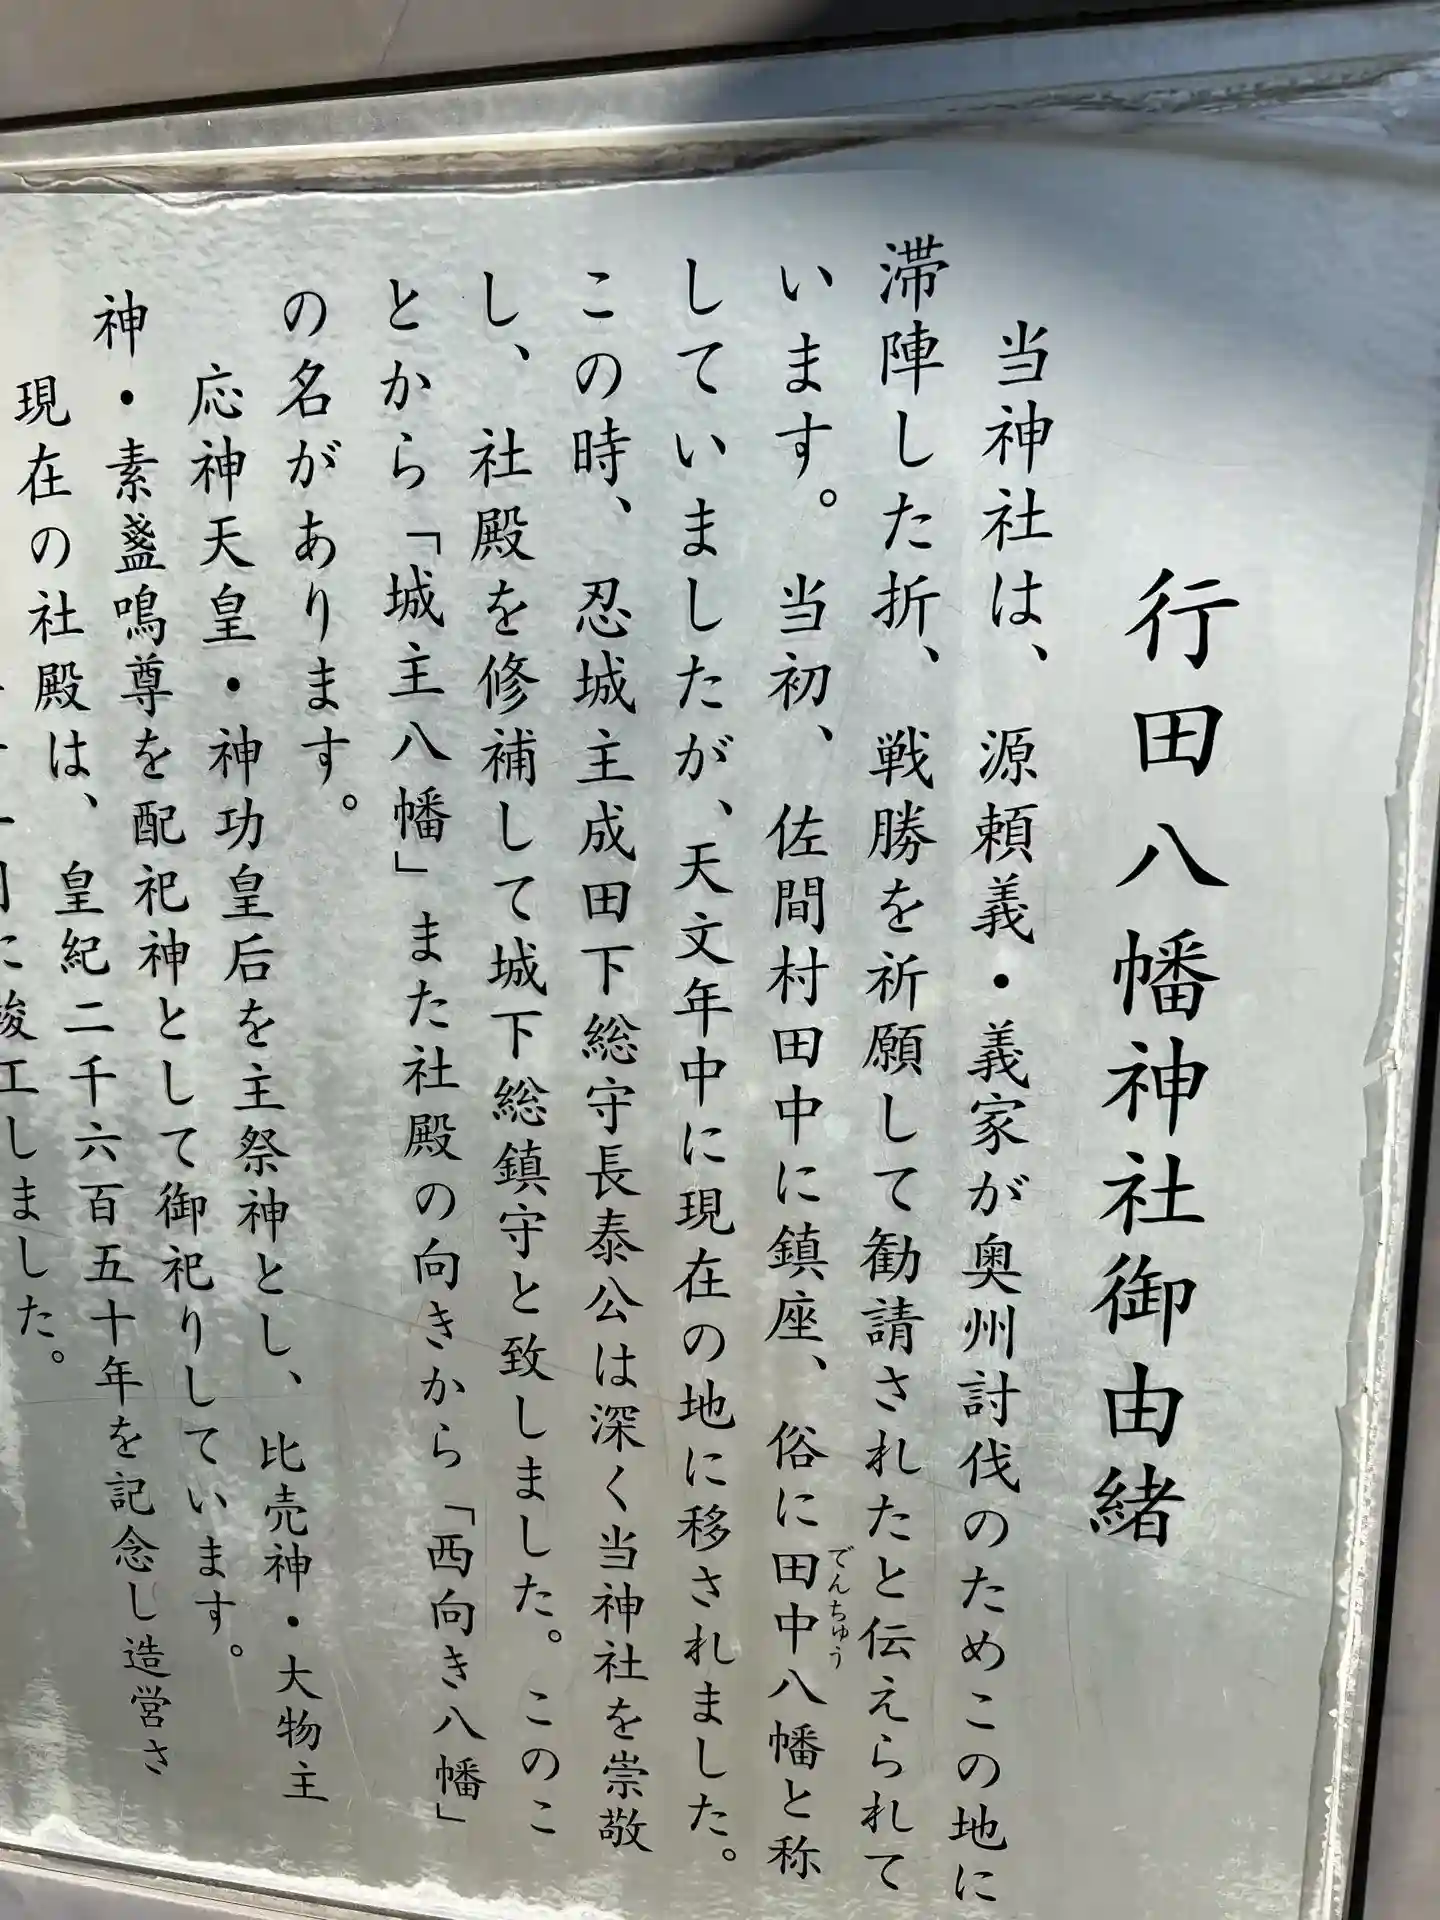 行田八幡神社御由緒
当神社は、源頼義・義家が奥州討伐のためこの地に
滞陣した折、戦勝を祈願して勧請されたと伝えられて
います。当初、佐間村田中に鎮座、俗に田中八幡と称
でんちゅう
していましたが、天文年中に現在の地に移されました。
この時、忍城主成田下総守長泰公は深く当神社を崇敬
し、社殿を修補して城下総鎮守と致しました。このこ
とから「城主八幡」また社殿の向きから「西向き八幡」
の名があります。
応神天皇・神功皇后を主祭神とし、比売神・大物主
神・素盞鳴尊を配祀神として御祀りしています。
現在の社殿は、皇紀二千六百五十年を記念し造営さ
に竣工しました。